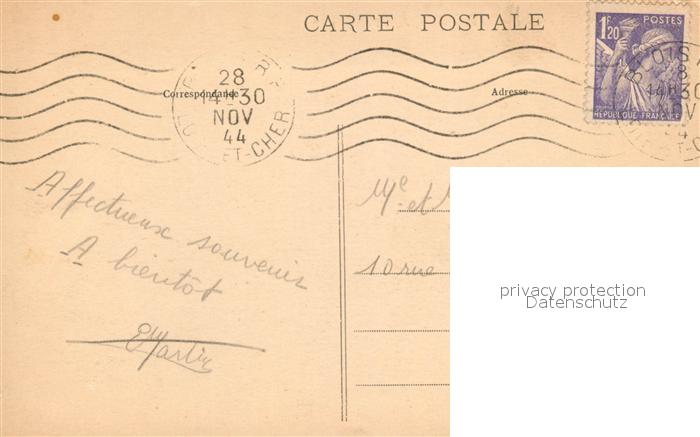 CARTE POSTALE
1F20 POSTES
RÉPUBLIQUE FRANÇAISE
28
14H30
NOV
44
ET-CHER
BLOIS
28
14H30
NOV
44
Correspondance
Adresse
Affectueux souvenir
A bientôt
EMartin
Me et
10 rue
privacy protection
Datenschutz